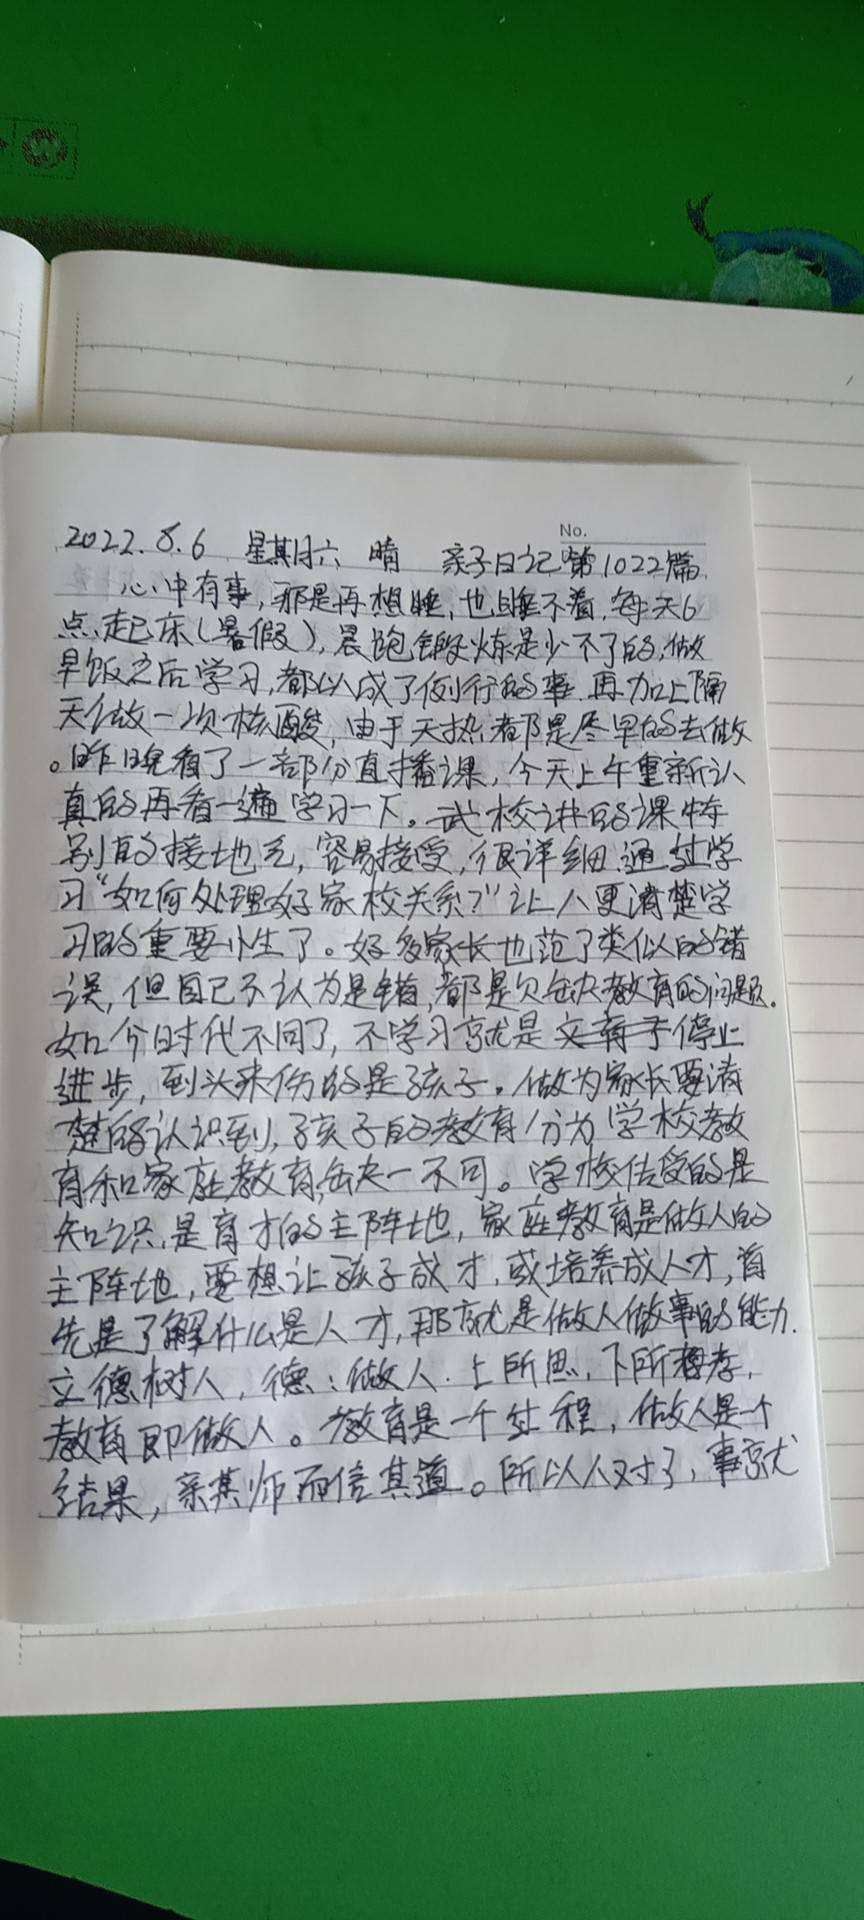 No.
2022.8.6 星期六 晴 亲子日记第1022篇
心中有事,那是再想睡,也睡不着,每天6
点起床(暑假),晨跑锻炼是少不了的,做
早饭之后学习,都以成了例行的事.再加上隔
天做一次核酸,由于天热都是尽早的去做
。昨晚看了一部分直播课,今天上午重新认
真的再看一遍学习一下。武校讲的课特
别的接地气,容易接受,很详细.通过学
习“如何处理好家校关系?”让人更清楚学
习的重要性了。好多家长也范了类似的错
误,但自己不认为是错,都是欠缺教育的问题.
如今时代不同了,不学习就是停止
进步,到头来伤的是孩子。做为家长要清
楚的认识到,孩子的教育分为学校教
育和家庭教育,缺一不可。学校传受的是
知识,是育才的主阵地,家庭教育是做人的
主阵地,要想让孩子成才,或培养成人才,首
先是了解什么是人才,那就是做人做事的能力.
立德树人,德:做人.上所思,下所孝,
教育即做人。教育是一个过程,做人是个
结果,亲其师而信其道。所以人对了,事就